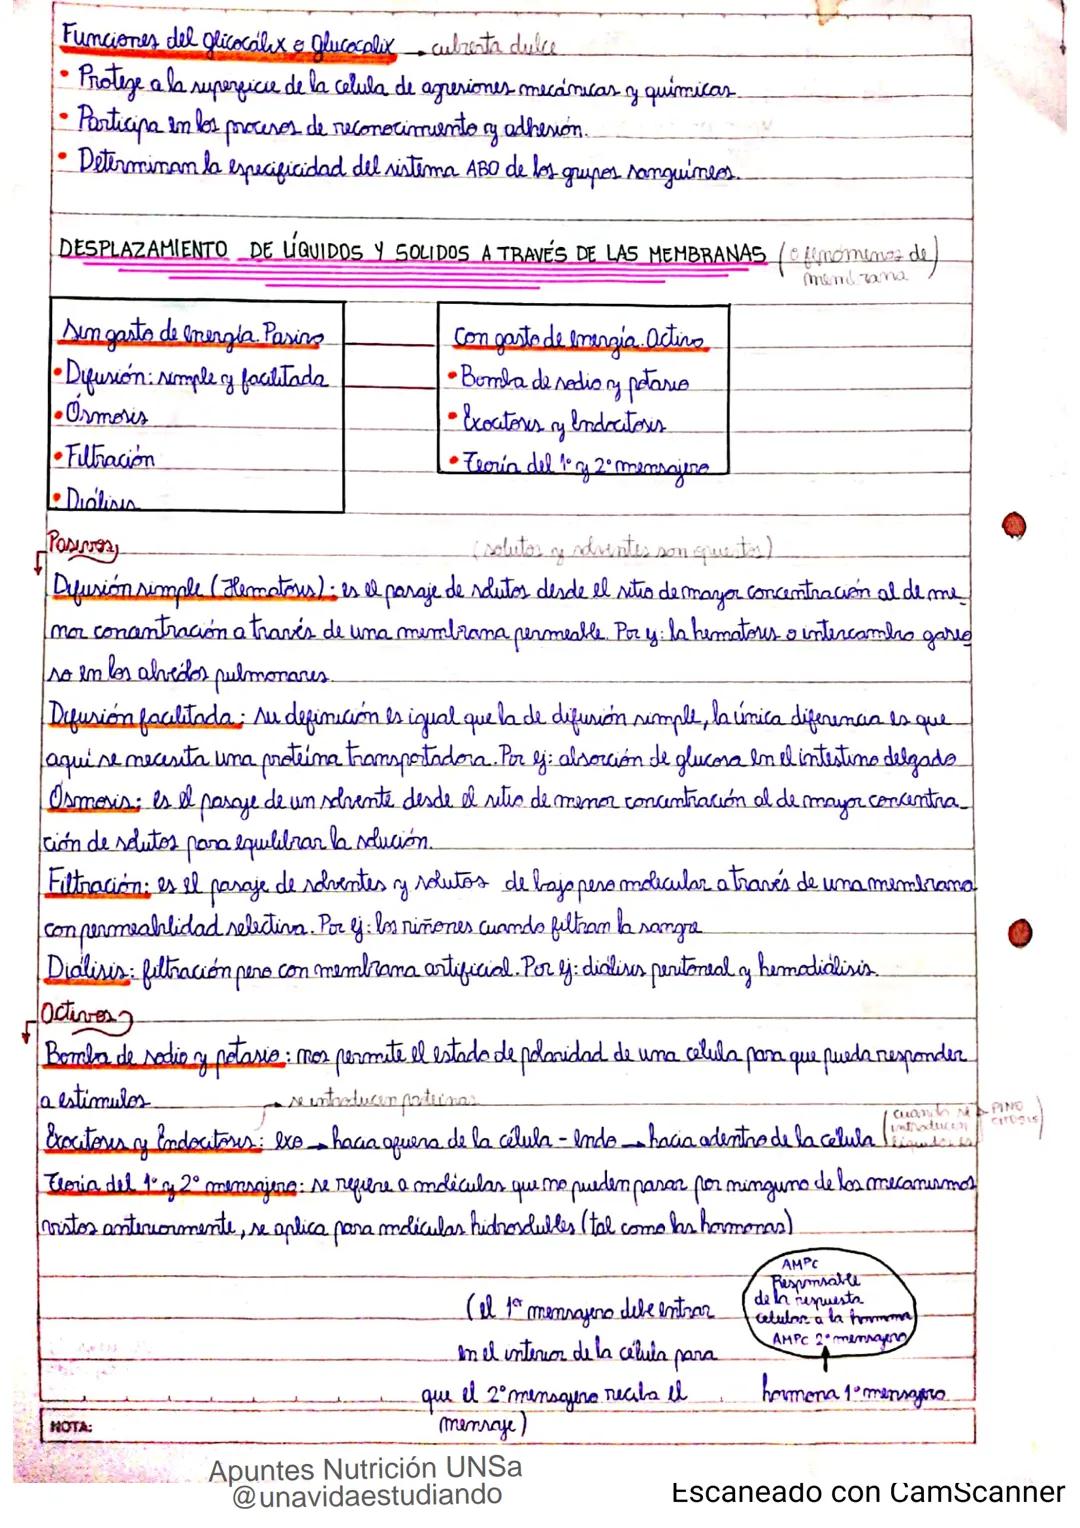 Funciones del glicocálix o glucocalix → cubierta dulce
• Protege a la superficie de la celula de agresiones mecánicas y químicas.
• Participa en los procesos de reconocimiento y adhesión.
• Determinan la especificidad del sistema ABO de los grupos sanguíneos.
DESPLAZAMIENTO DE LÍQUIDOS Y SOLIDOS A TRAVÉS DE LAS MEMBRANAS (o fenómenos de
membrana)
Sin gasto de energía. Pasivo
• Difusión: simple y facilitada
• Ósmosis
• Filtración
• Diálisis
Con gasto de energía. Activo
• Bomba de sodio y potasio
• Exocitosis y Endocitosis
• Teoría del 1° y 2° mensajero
Pasivos
(solutos y solventes son opuestos)
Difusión simple (Hematosis): es el pasaje de solutos desde el sitio de mayor concentración al de me_
nor concentración a través de una membrana permeable. Por ej: la hematosis o intercambio gaseo
so en los alvéolos pulmonares.
Difusión facilitada: su definición es igual que la de difusión simple, la única diferencia es que
aquí se necesita una proteína transportadora. Por ej: absorción de glucosa en el intestino delgado
Ósmosis: es el pasaje de un solvente desde el sitio de menor concentración al de mayor concentra_
ción de solutos para equilibrar la solución.
Filtración: es el pasaje de solventes y solutos de bajo peso molecular a través de una membrana
con permeabilidad selectiva. Por ej: los riñones cuando filtran la sangre
Diálisis: filtración pero con membrana artificial. Por ej: diálisis peritoneal y hemodiálisis.
Activos
Bomba de sodio y potasio: nos permite el estado de polaridad de una célula para que pueda responder
a estímulos
→ se introducen proteínas
Exocitosis y Endocitosis: exo → hacia afuera de la célula - endo → hacia adentro de la célula (cuando se introducen líquidos es → PINOCITOSIS)
Teoría del 1° y 2° mensajero: se refiere a moléculas que no pueden pasar por ninguno de los mecanismos
vistos anteriormente, se aplica para moléculas hidrosolubles (tal como las hormonas)
AMPc
Responsable
de la respuesta
celular a la hormona
AMPc 2° mensajero
(el 1er mensajero debe entrar
en el interior de la célula para
que el 2° mensajero reciba el
mensaje)
hormona 1° mensajero
NOTA:
Apuntes Nutrición UNSa
@unavidaestudiando
Escaneado con CamScanner